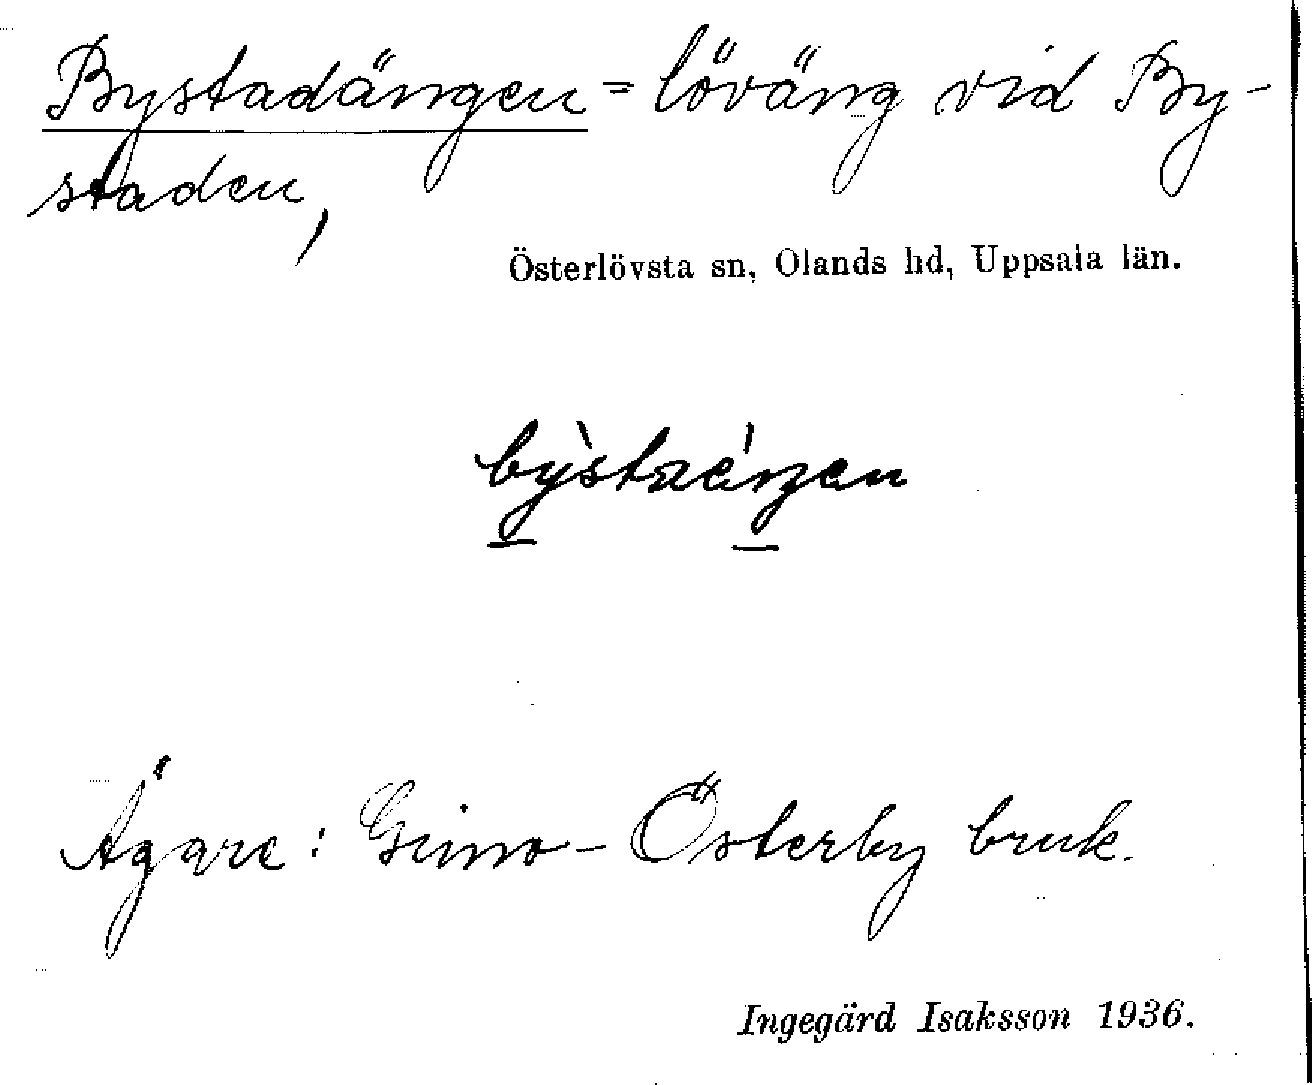 Bystadängen = löväng vid By-
staden,
Österlövsta sn, Olands hd, Uppsala län.
Ägare: Gimo-Österby bruk.
Ingegärd Isaksson 1936.